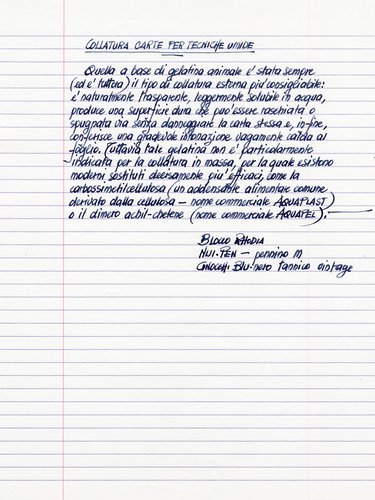 COLLATURA CARTE PER TECNICHE UMIDE
Quella a base di gelatina animale è stata sempre
(ed e' tuttora) il tipo di collatura esterna piu' consigliabile:
e' naturalmente trasparente, leggermente solubile in acqua,
produce una superficie dura che puo' essere raschiata o
spugnata via senza danneggiare la carta stessa e, in-fine,
conferisce una gradevole intonazione vagamente calda al
foglio. Tuttavia tale gelatina non e' particolarmente
indicata per la collatura in massa, per la quale esistono
moderni sostituti decisamente piu' efficaci, come la
carbossimetilcellulosa (un addensante alimentare comune
derivato dalla cellulosa – nome commerciale AQUAPLAST)
o il dimero achil-chetene (nome commerciale AQUAPEL).
BLOCCO RHODIA
NUI-PEN – pennino M
BLU-nero tannico vintage